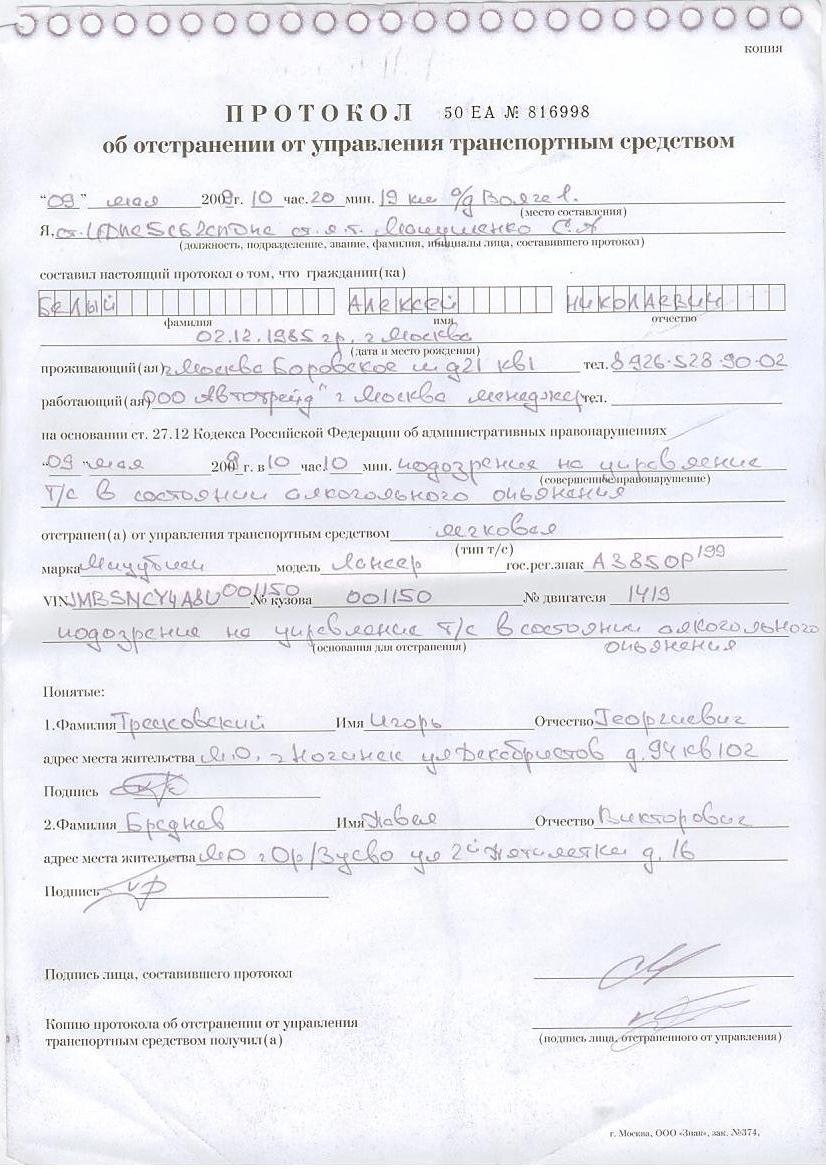 копия
ПРОТОКОЛ 50 ЕА № 816998
об отстранении от управления транспортным средством
"09" мая 2009г. 10 час. 20 мин. 19 км а/д Волга 1.
(место составления)
Я, ст. 5СБ2СПДПС ст. л-т.
(должность, подразделение, звание, фамилия, инициалы лица, составившего протокол)
составил настоящий протокол о том, что гражданин(ка)
БЕЛЫЙ АЛЕКСЕЙ НИКОЛАЕВИЧ
фамилия имя отчество
02.12.1985 гр. г. Москва
(дата и место рождения)
проживающий(ая) г Москва Боровское ш д21 кв1 тел. 8926-528-90-02
работающий(ая) ООО Автотрейд" г Москва менеджер тел.
на основании ст. 27.12 Кодекса Российской Федерации об административных правонарушениях
"09" мая 2009 г. в 10 час 10 мин. подозрения на управление
(совершенное правонарушение)
т/с в состоянии алкогольного опьянения
отстранен(а) от управления транспортным средством легковая
(тип т/с)
марка Мицубиси модель Лансер гос.рег.знак А385ОР199
VIN JMBSNCY4A8U001150 № кузова 001150 № двигателя 1419
подозрения на управление т/с в состоянии алкогольного
(основания для отстранения) опьянения
Понятые:
1.Фамилия Имя Игорь Отчество Георгиевич
адрес места жительства М.О. г Ногинск ул Декабристов д. 94 кв 102
Подпись
2.Фамилия Бреднев Имя Павел Отчество Викторович
адрес места жительства МО г Ор/Зуево ул 2й Пятилетки д. 16
Подпись
Подпись лица, составившего протокол
Копию протокола об отстранении от управления
транспортным средством получил(а)
(подпись лица, отстраненного от управления)
г. Москва, ООО «Знак», зак. №374,